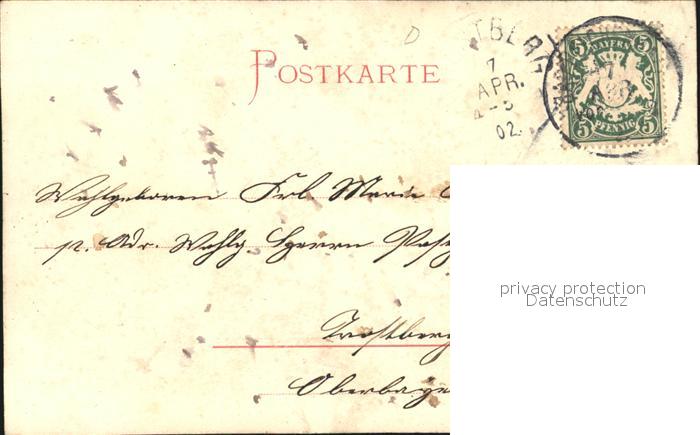 POSTKARTE
TBERG
7
APR.
02.
BAYERN
5 5
7
APR
5 PFENNIG 5
Wohlgeboren Frl. Marie
p. Adr. Wohlg. Herrn
Trostberg
Oberbaye
privacy protection
Datenschutz